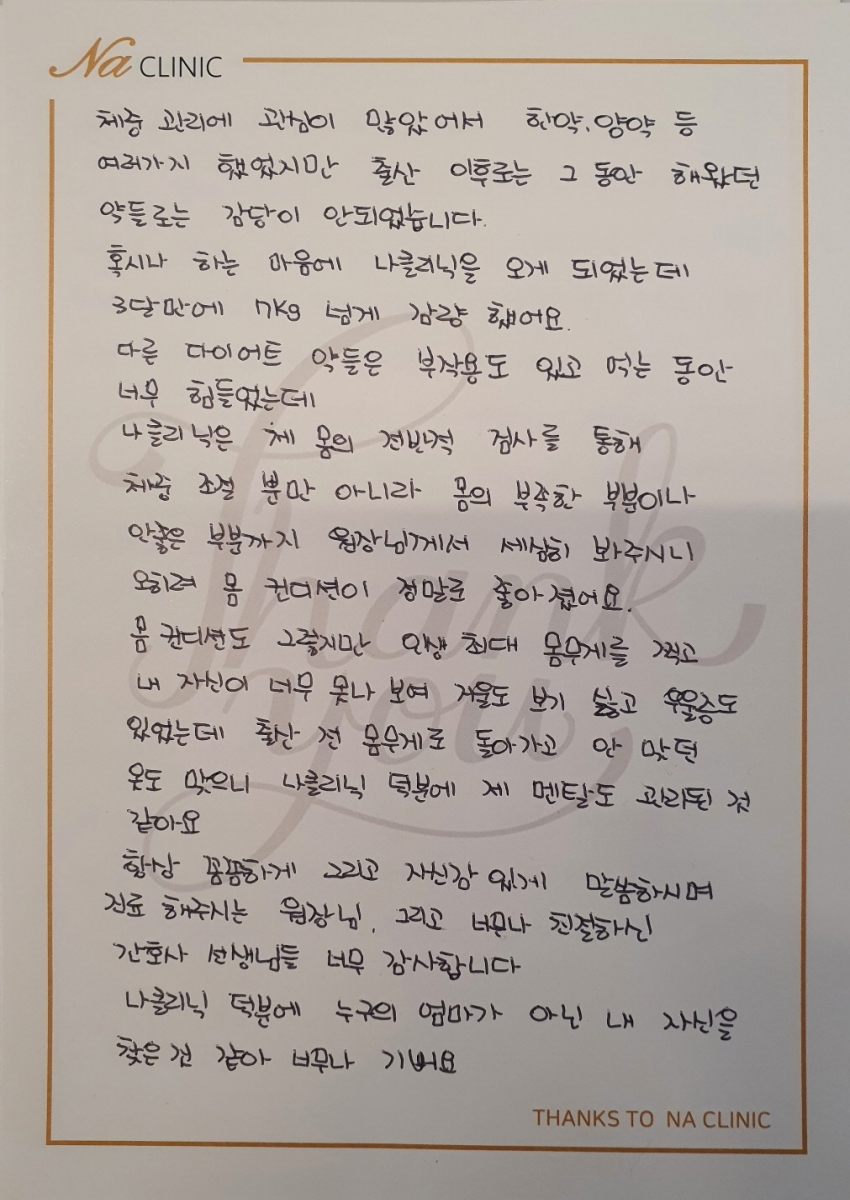 Na CLINIC
체중 관리에 관심이 많았어서 한약, 양약 등
여러가지 했었지만 출산 이후로는 그 동안 해왔던
약들로는 감당이 안되었습니다.
혹시나 하는 마음에 나클리닉을 오게 되었는데
3달만에 7kg 넘게 감량 했어요.
다른 다이어트 약들은 부작용도 있고 먹는 동안
너무 힘들었는데
나클리닉은 제 몸의 전반적 검사를 통해
체중 조절 뿐만 아니라 몸의 부족한 부분이나
안좋은 부분까지 원장님께서 세심히 봐주시니
오히려 몸 컨디션이 정말로 좋아졌어요.
몸 컨디션도 그렇지만 인생 최대 몸무게를 찍고
내 자신이 너무 못나 보여 거울도 보기 싫고 우울증도
있었는데 출산 전 몸무게로 돌아가고 안 맞던
옷도 맞으니 나클리닉 덕분에 제 멘탈도 관리된 것
같아요
항상 꼼꼼하게 그리고 자신감 있게 말씀하시며
진료 해주시는 원장님, 그리고 너무나 친절하신
간호사 선생님들 너무 감사합니다
나클리닉 덕분에 누구의 엄마가 아닌 내 자신을
찾은 건 같아 너무나 기뻐요
Thank
you
THANKS TO NA CLINIC